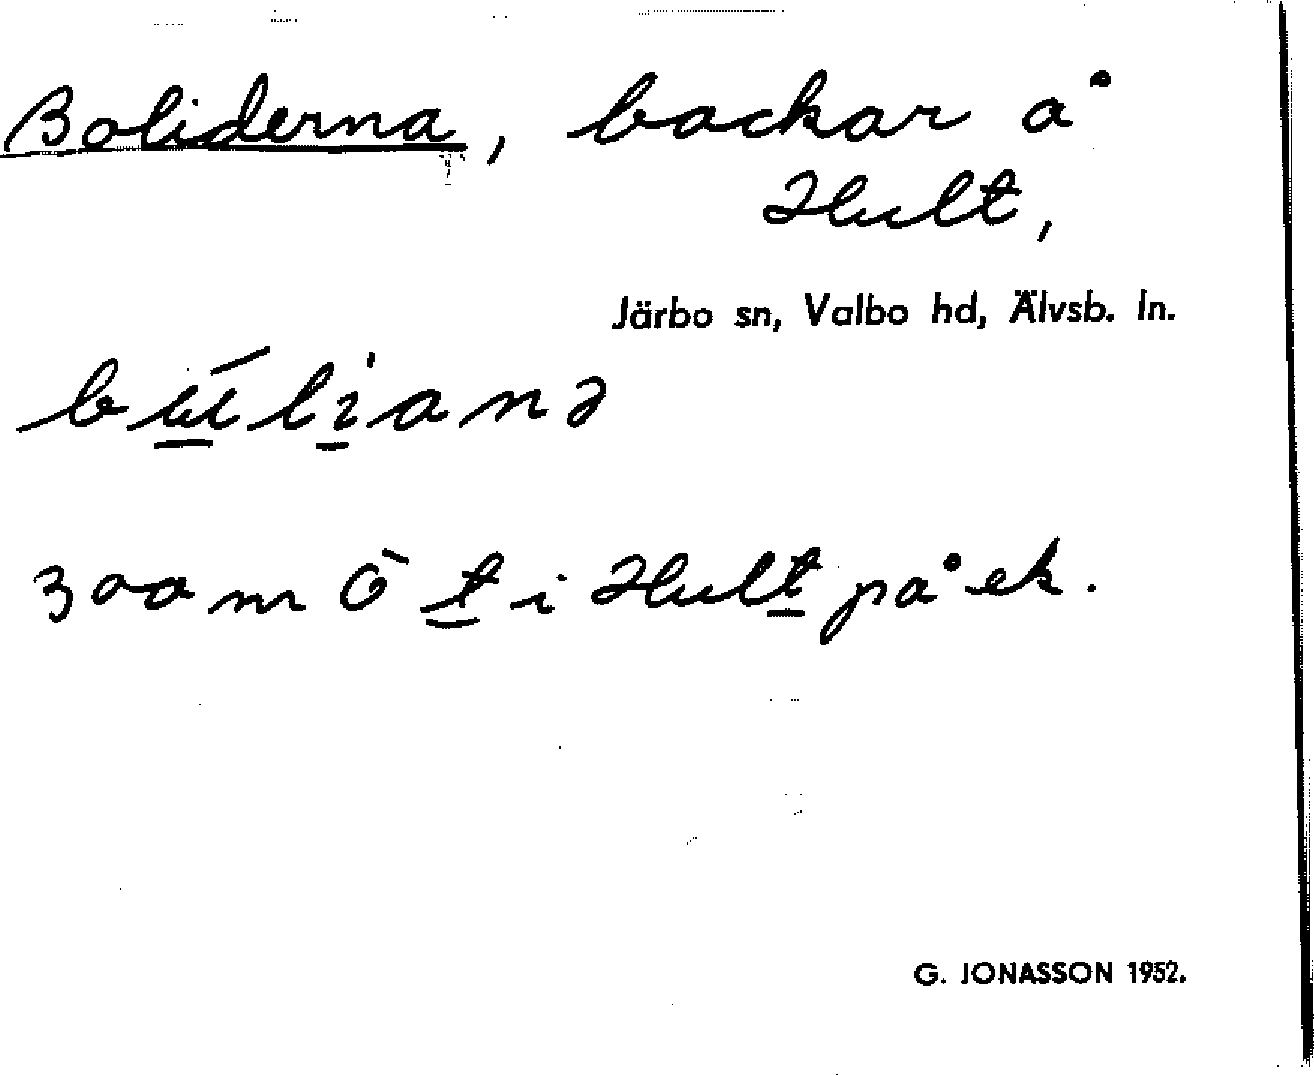 Boliderna, backar å
Hult,
Järbo sn, Valbo hd, Älvsb. ln.
300 m Ö t i Hult på ek.
G. JONASSON 1952.